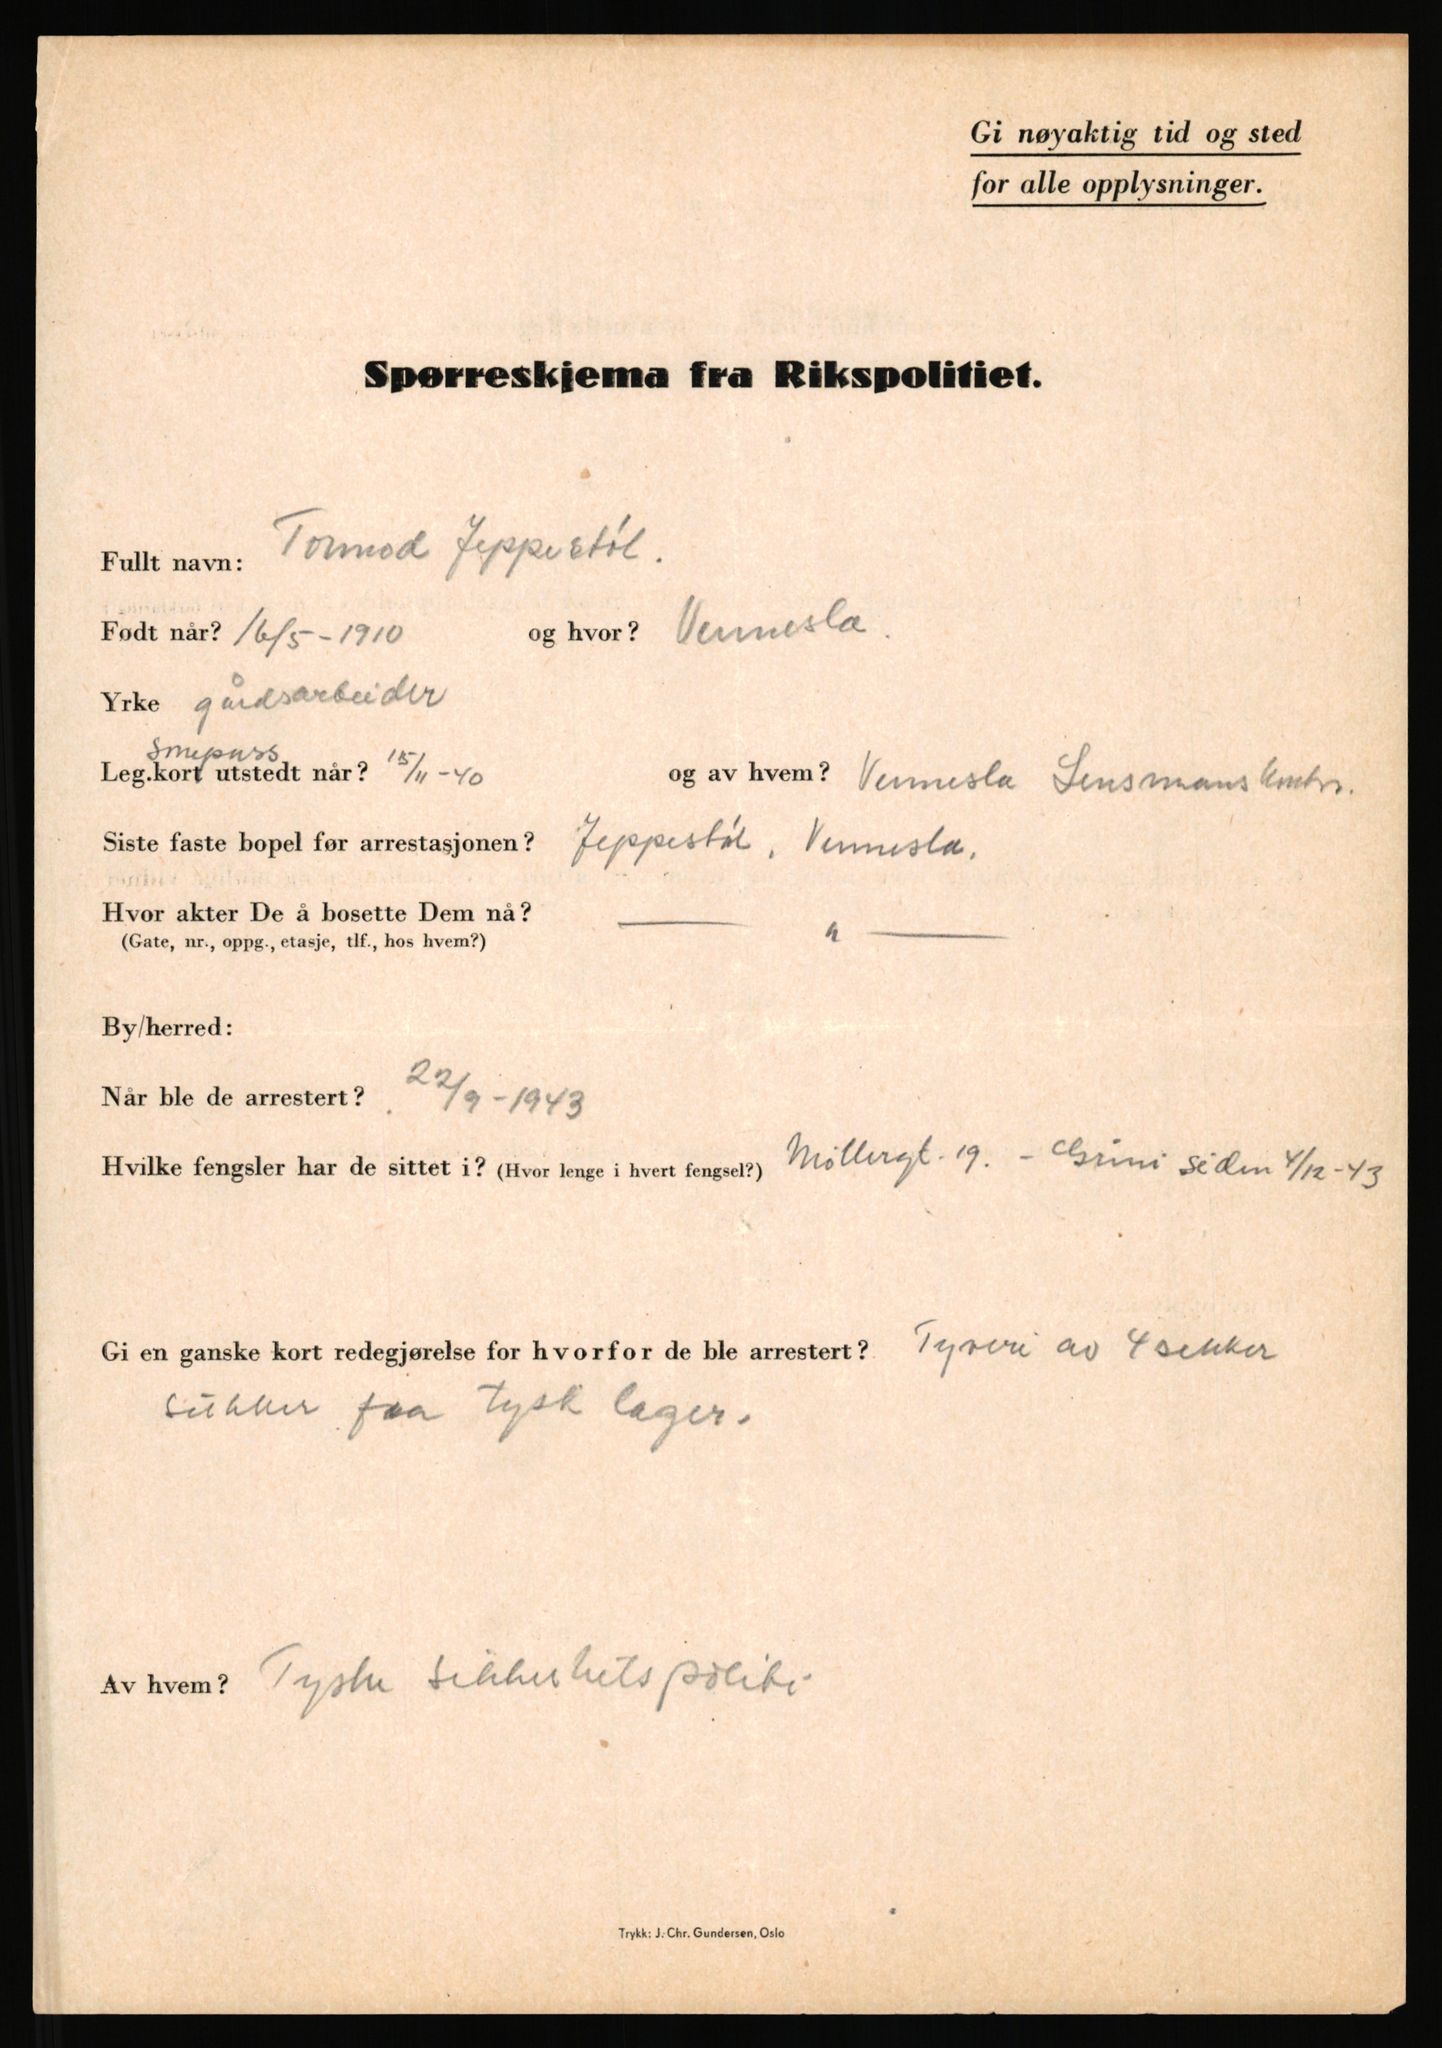 Gi nøyaktig tid og sted
for alle opplysninger.
Spørreskjema fra Rikspolitiet.
Fullt navn: Tormod Jeppestøl.
Født når? 16/5-1910 og hvor? Vennesla.
Yrke gårdsarbeider
Leg.kort utstedt når? 15/11-40 og av hvem? Vennesla Lensmanskontor.
Siste faste bopel før arrestasjonen? Jeppestøl, Vennesla.
Hvor akter De å bosette Dem nå? — " —
(Gate, nr., oppg., etasje, tlf., hos hvem?)
By/herred:
Når ble de arrestert? 22/9-1943
Hvilke fengsler har de sittet i? (Hvor lenge i hvert fengsel?) Møllergt. 19. - Grini siden 4/12-43
Gi en ganske kort redegjørelse for hvorfor de ble arrestert? Tyveri av 4 sekker
sukker fra tysk lager.
Av hvem? Tyske sikkerhetspoliti
Trykk: J. Chr. Gundersen, Oslo